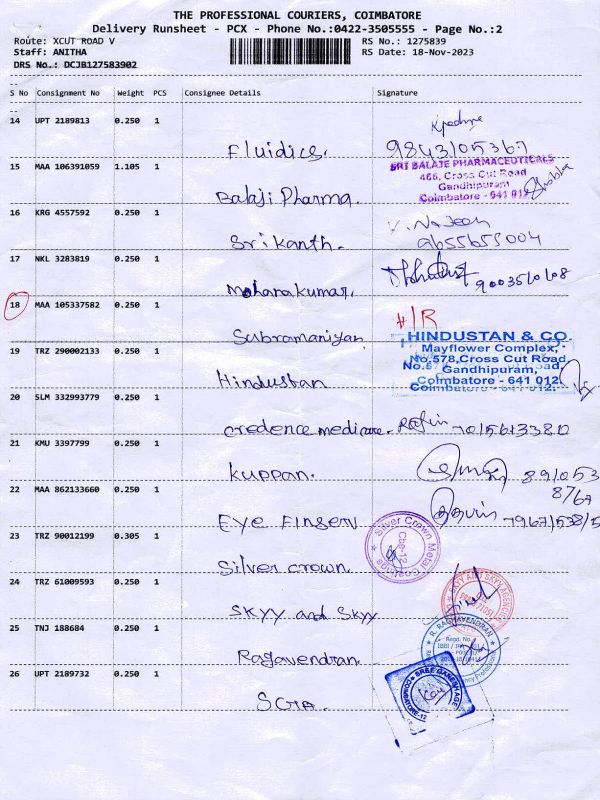 THE PROFESSIONAL COURIERS, COIMBATORE
Delivery Runsheet - PCX - Phone No.:0422-3505555 - Page No.:2
Route: XCUT ROAD V
RS No.: 1275839
Staff: ANITHA
RS Date: 18-Nov-2023
DRS No.: DCJB127583902
S No Consignment No Weight PCS Consignee Details Signature
14 UPT 2189813 0.250 1
Fluidics. 9843105367
15 MAA 106391059 1.105 1
SRI BALAJE PHARMACEUTICALS
466, Cross Cut Road
Gandhipuram
Coimbatore - 641 012
Balaji Pharma.
16 KRG 4557592 0.250 1
Srikanth. 9655655004
17 NKL 3283819 0.250 1
Mohanakumar. 9003510108
18 MAA 105337582 0.250 1
Subramaniyan
HINDUSTAN & CO.
Mayflower Complex,
No.578,Cross Cut Road,
Gandhipuram,
Coimbatore - 641 012.
19 TRZ 290002133 0.250 1
Hindustan
20 SLM 332993779 0.250 1
credence medicare. 7015613380
21 KMU 3397799 0.250 1
kuppan. 891053
8769
22 MAA 862133660 0.250 1
Eye Finserv
23 TRZ 90012199 0.305 1
Silver Crown Metal Coatings
Cbe-12
Silver crown.
24 TRZ 61009593 0.250 1
SKYY and SKYY
25 TNJ 188684 0.250 1
R. RAGHAVENDRAN
Regd. No.
Ragavendran.
26 UPT 2189732 0.250 1
SREE GANESHAGE
COIMBATORE-12